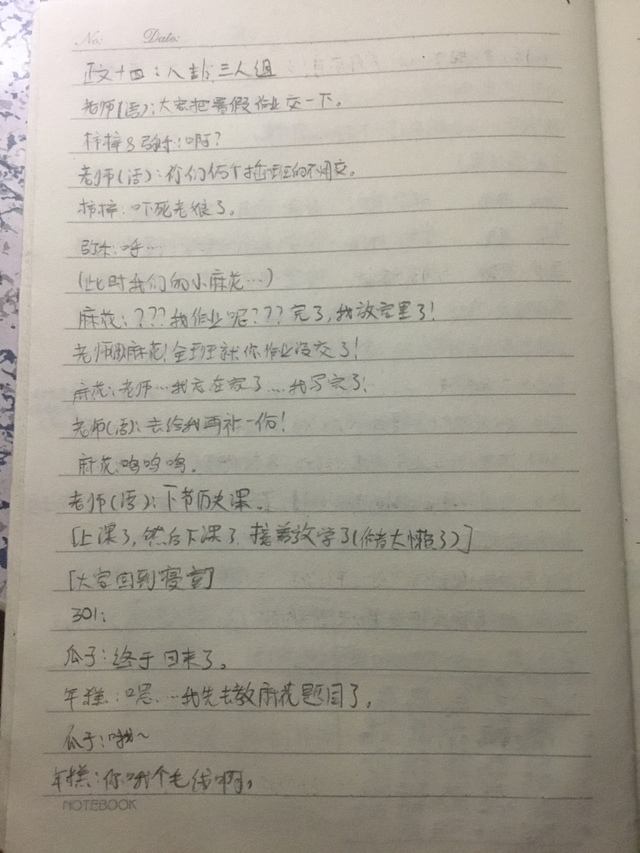 No: Date:
正文十四:八卦三人组
老师(语):大家把暑假作业交一下。
柿梓&弥弥:啊?
老师(语):你们俩个插班的不用交。
柿梓:吓死老娘了。
弥弥:呼…
(此时我们的小麻花…)
麻花:???我作业呢???完了,我放家里了!
老师:麻花!全班就你作业没交了!
麻花:老师…我忘在家了…我写完了!
老师(语):去给我再补一份!
麻花:呜呜呜。
老师(语):下节历史课。
[上课了,然后下课了,接着放学了(作者太懒了)]
[大家回到寝室]
301:
瓜子:终于回来了。
年糕:嗯…我先去教麻花题目了。
瓜子:哦~
年糕:你哦个毛线啊,
NOTEBOOK